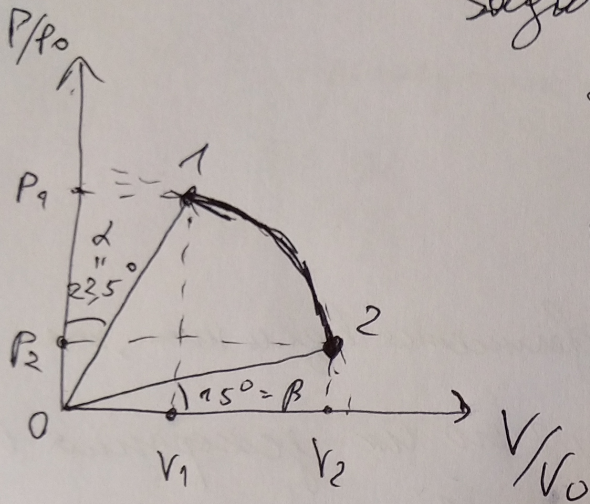 P/p₀
1
P₁
α
"
22,5°
2
P₂
15° = β
0
V₁
V₂
V/V₀